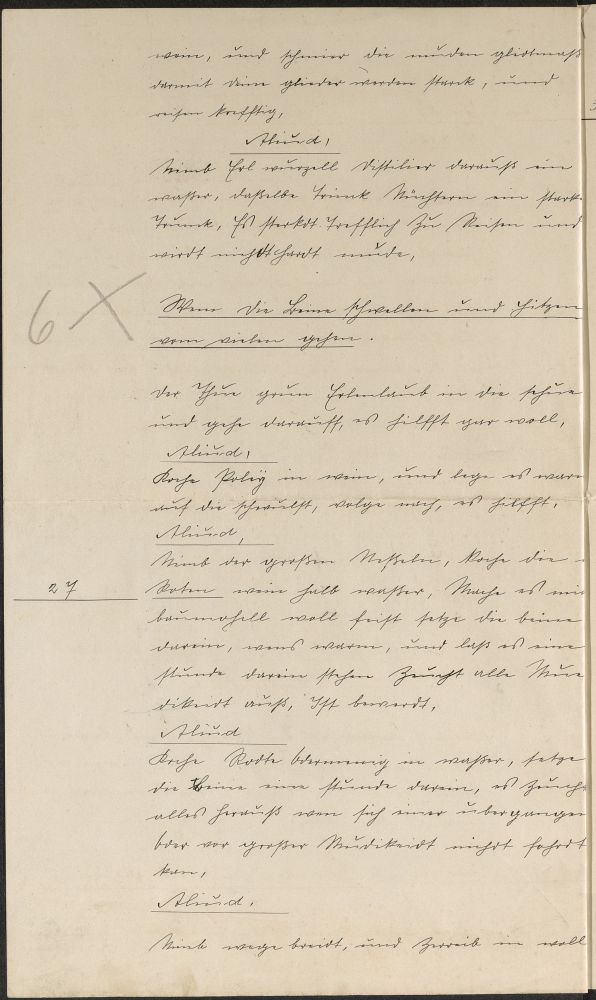 wein, und schmier die muden glidtmaß
darmit deine glieder werden starck, und
reisen krefftig,
Aliud,
Nimb Erl wurzell Distilier darauß ein
waßer, daßelbe Trink Nüchtern ein starke
Trunck, Es sterkdt Trefflich Zu Reisen und
wirdt nichdt hardt mude,
6 X
Wenn die Beine schwellen und hitzen
vom vielen gehen.
der Thue grun Erlenlaub in die schue
und gehe darauff, es hilfft gar woll,
Aliud,
Koche Poliÿ in wein, und lege es warm
auf die schwulst, volge nach, es hilfft,
Aliud,
Nimb der großen Neßeln, koche die
27
Roten wein halb waßer, Mache es mit
baumohell woll feist setze die beine
darein, wens warm, und laß es eine
stunde darein stehen Zeucht alle Mue
dikeidt auß, Ist bewerdt,
Aliud
Koche Rodte Odermenig in waßer, setze
die Beine eine stunde darein, es Zeuch
alles herauß wen sich einer ubergangen
oder vor großer Mudikeidt nicht fohrdt
kan,
Aliud,
Nimb wege breidt, und Zerreib in woll